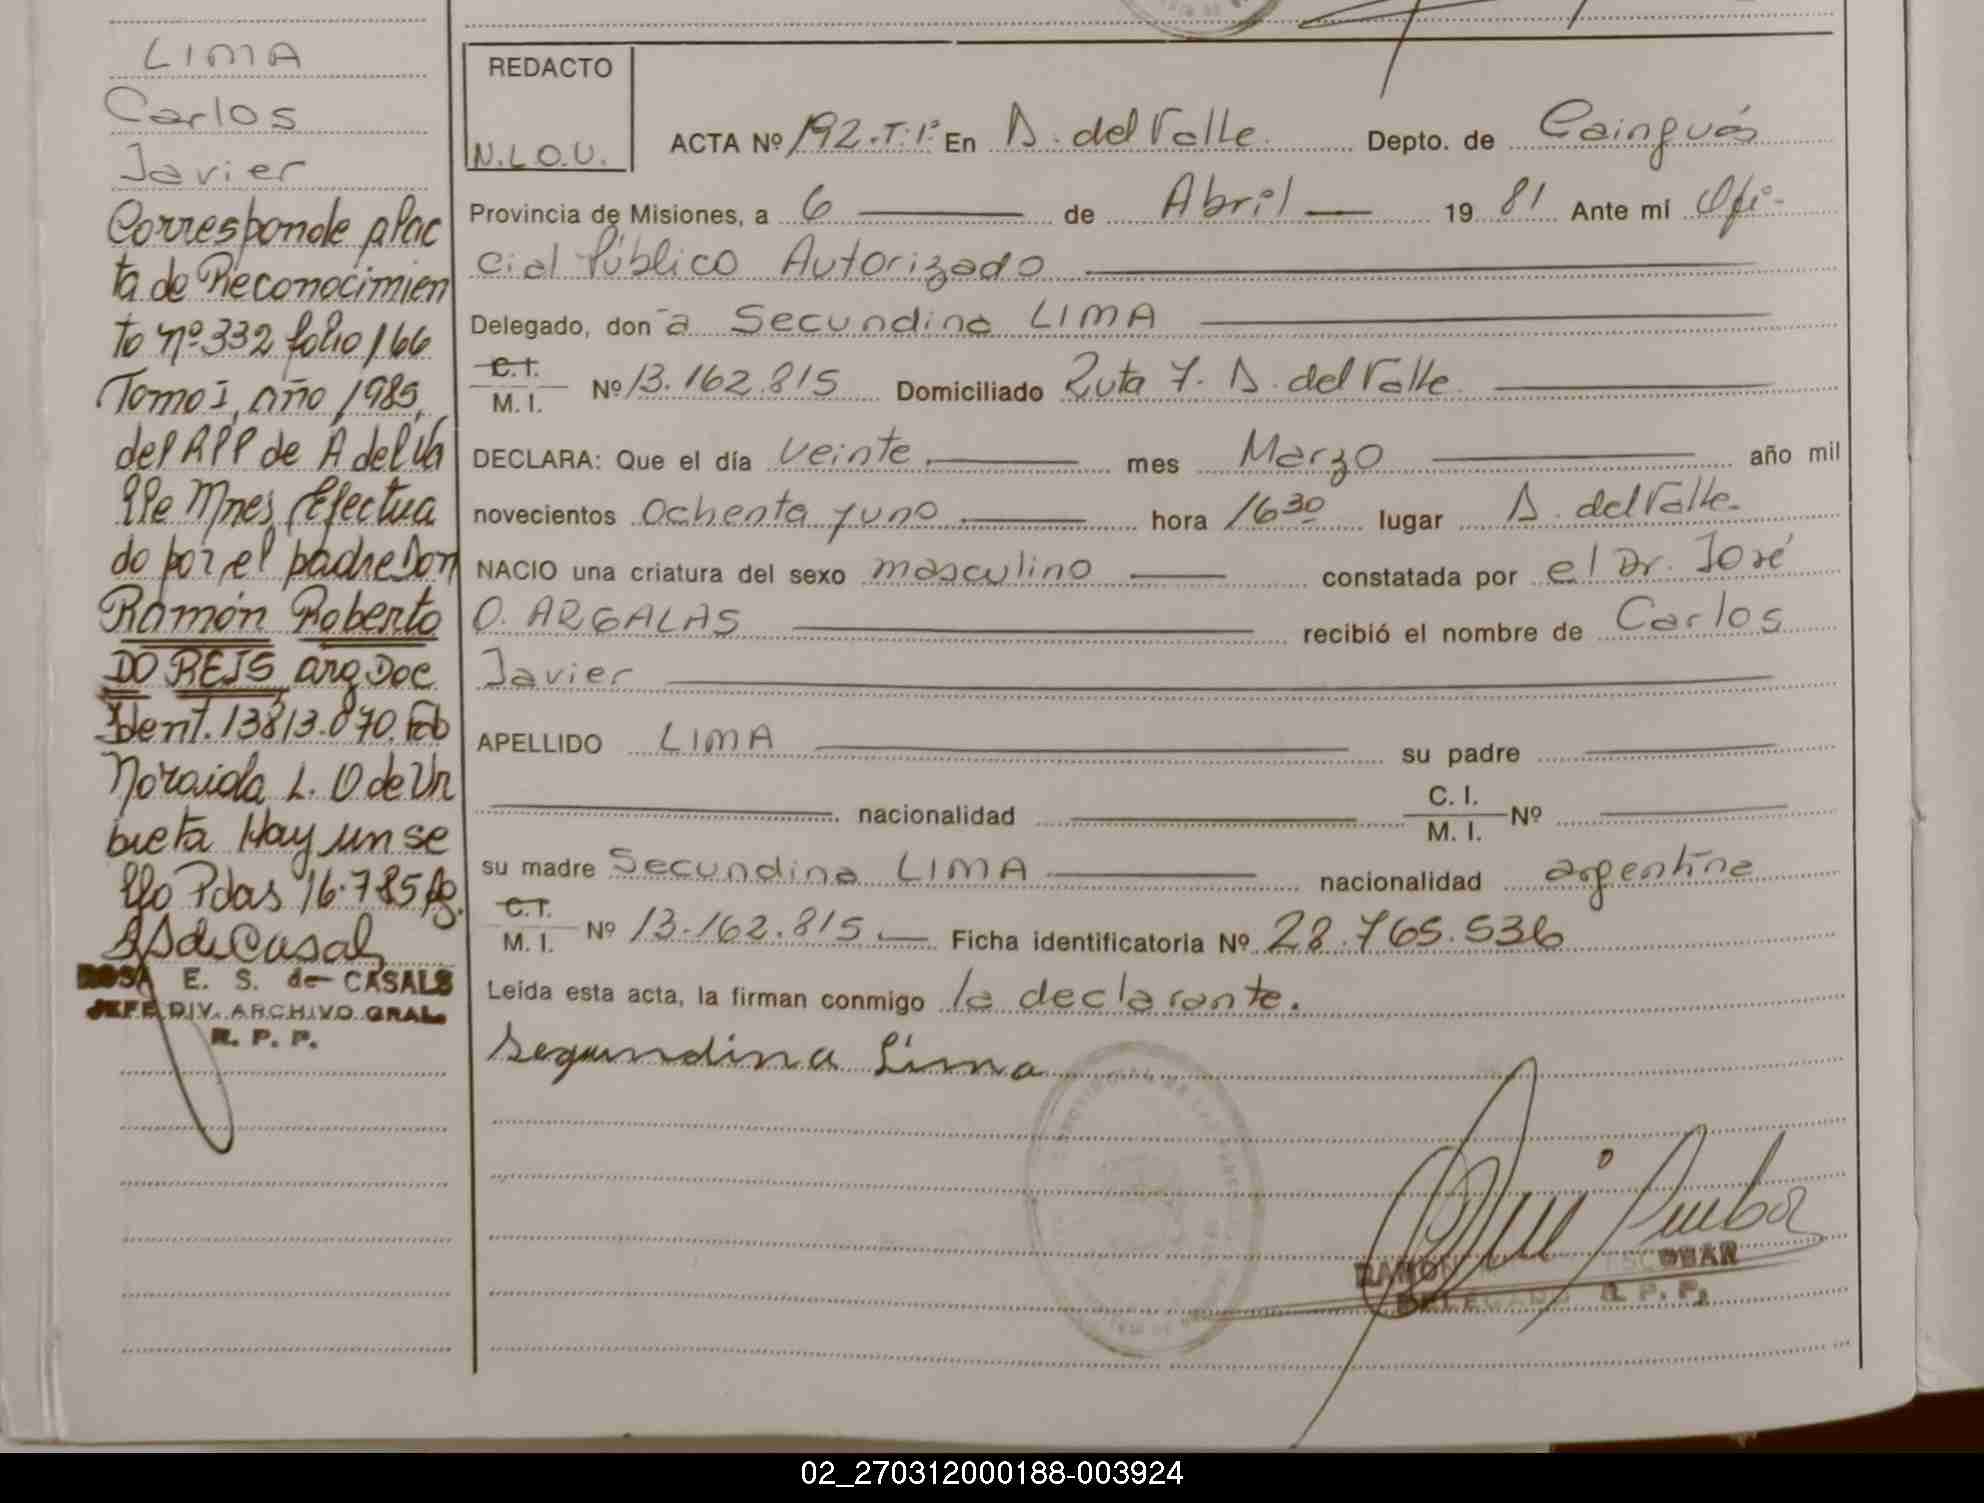 LIMA
Carlos
Javier
Corresponde p/ac
ta de Reconocimien
to nº 332 folio 166
Tomo I, año 1985,
del RPP de A del Va
lle Mnes, Efectua
do por el padre Don
Ramón Roberto
DO REIS arg Doc
Ident. 13813.070. Fdo
Noraida L. O de Ur
bieta Hay un se
llo Pdas 16.785/
ROSA E. S. de CASALS
JEFE DIV. ARCHIVO GRAL.
R. P. P.
REDACTO
N.L.O.U.
ACTA Nº 192.T.1º En A. del Valle. Depto. de Cainguás
Provincia de Misiones, a 6 de Abril 19 81 Ante mí Ofi-
cial Público Autorizado
Delegado, don a Secundina LIMA
C.I.
M. I. Nº 13.162.815 Domiciliado Ruta 7. A. del Valle
DECLARA: Que el día veinte mes Marzo año mil
novecientos ochenta y uno hora 16 30 lugar A. del Valle.
NACIO una criatura del sexo masculino constatada por el Dr. José
O. ARGALAS recibió el nombre de Carlos
Javier
APELLIDO LIMA su padre
nacionalidad C. I.
M. I. Nº
su madre Secundina LIMA nacionalidad argentina
C.I.
M. I. Nº 13.162.815. Ficha identificatoria Nº 28.765.536
Leída esta acta, la firman conmigo la declarante.
Segundina Lima
RAMON ESCOBAR
DELEGADO R. P. P.
02_270312000188-003924